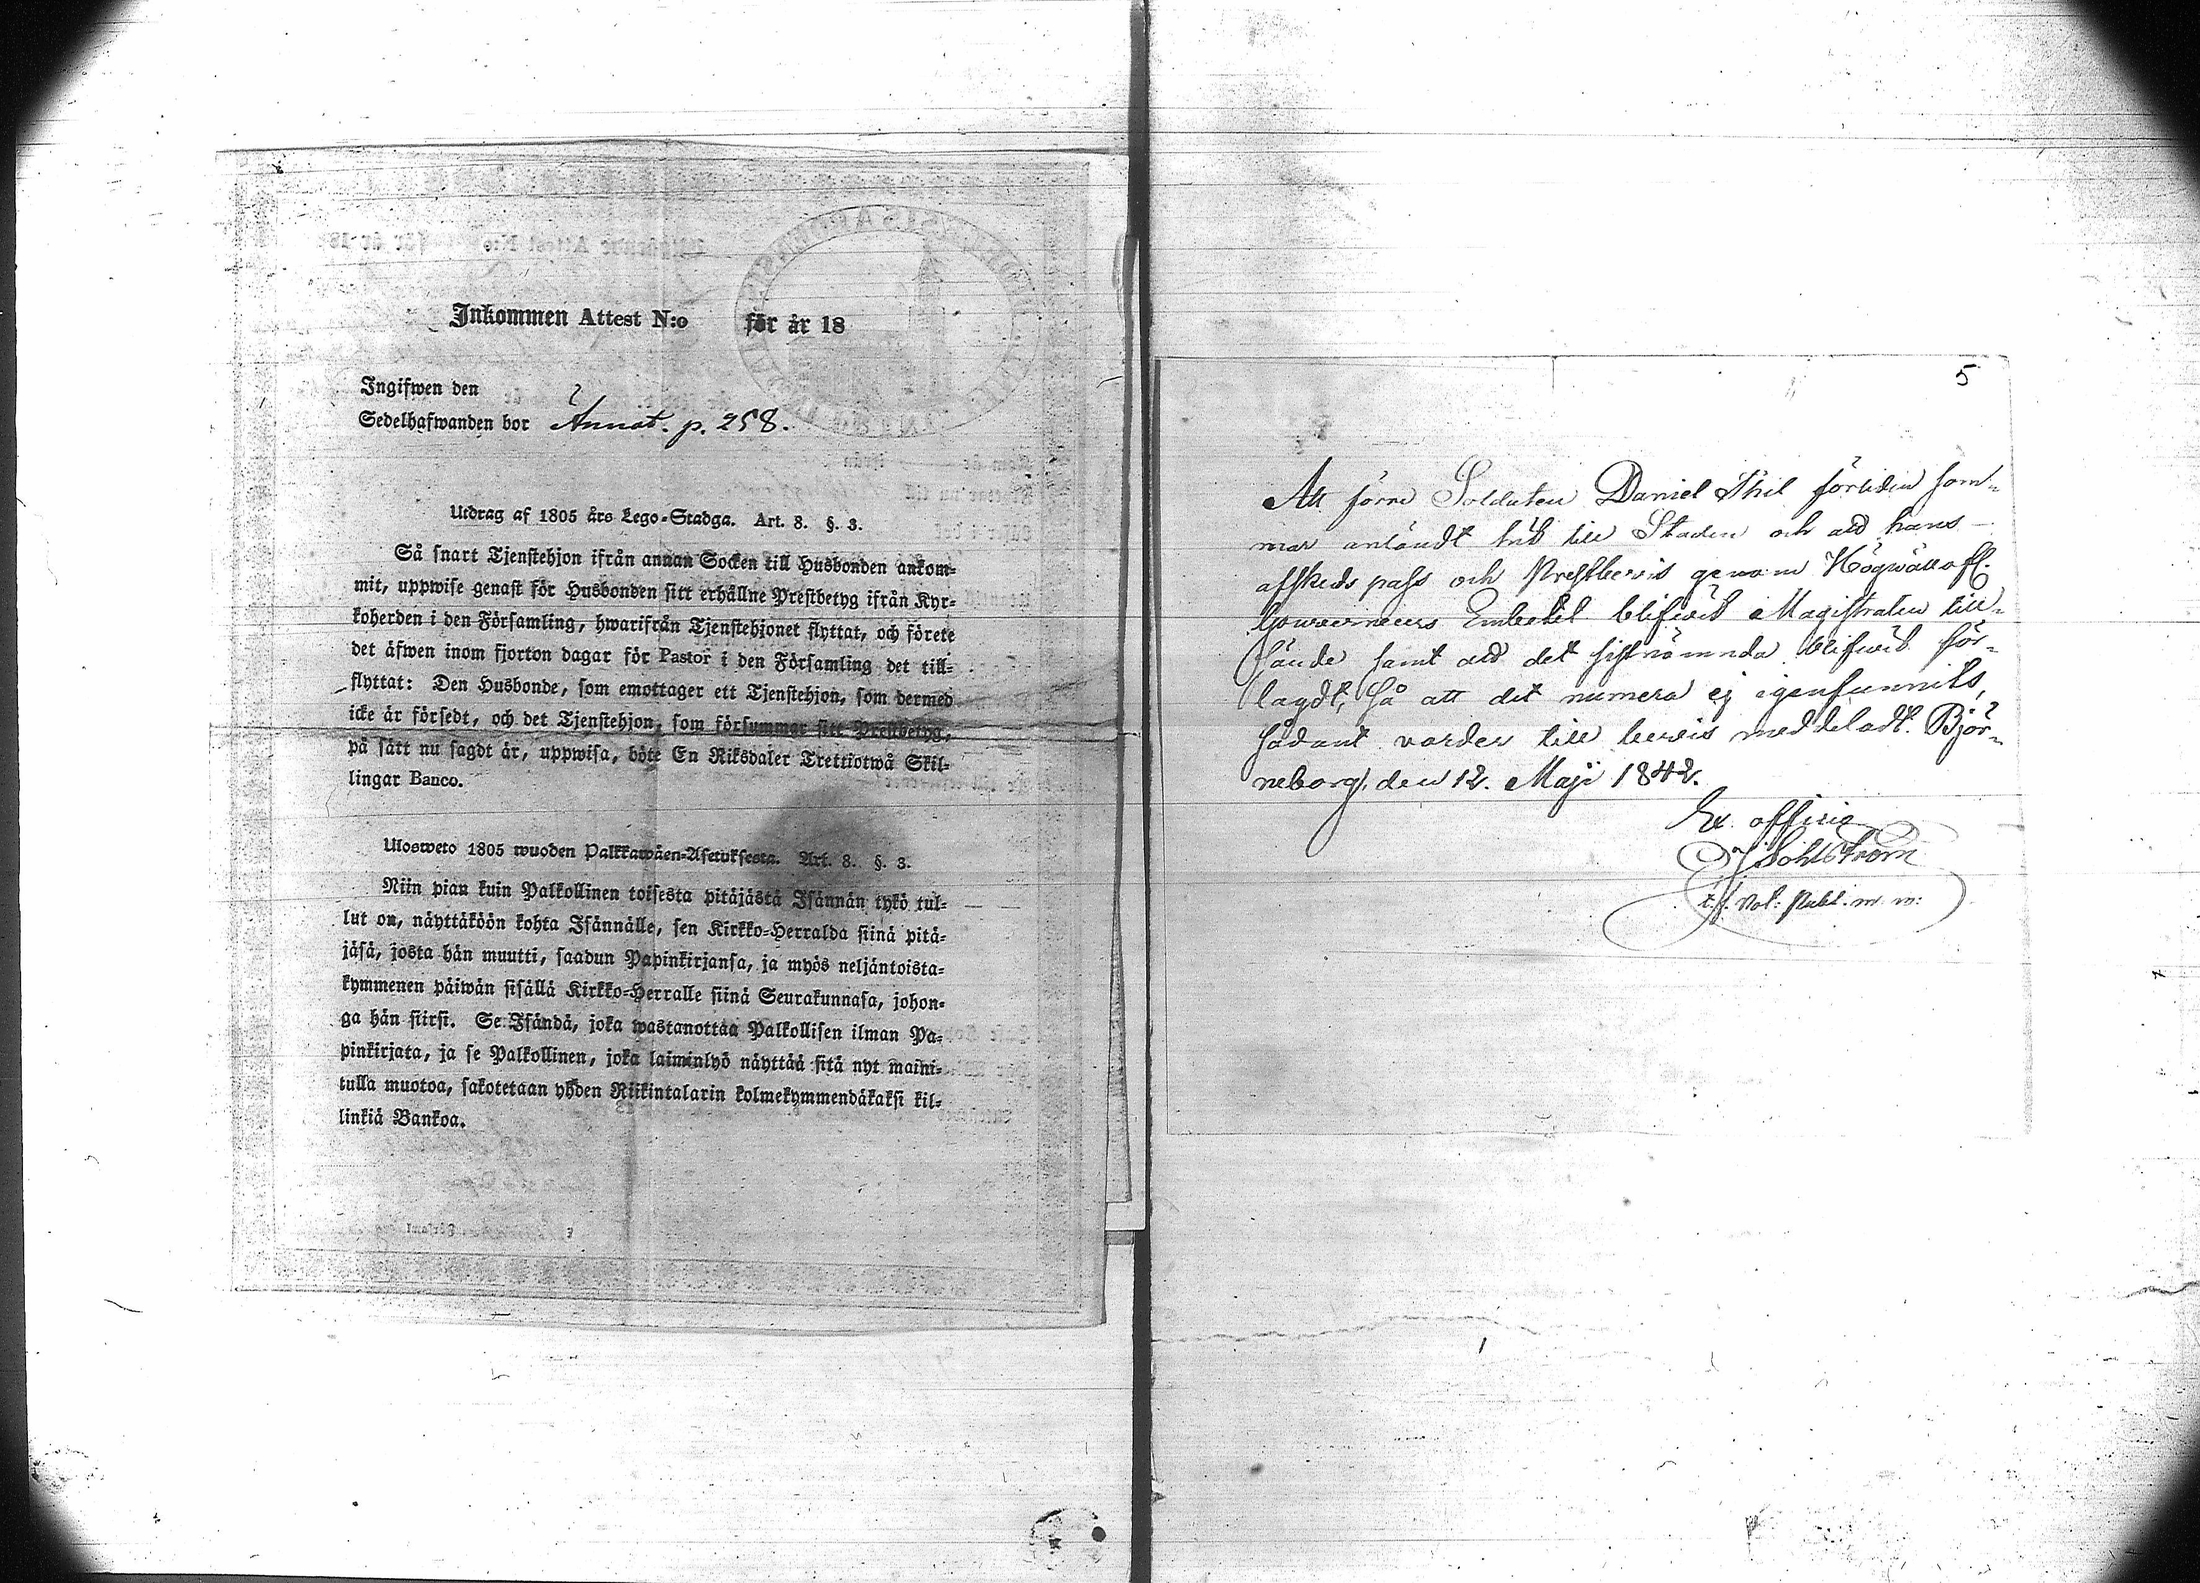 Inkommen Attest N:o för år 18
Ingifwen den
Sedelhafwanden bor Annot. p. 258.
Utdrag af 1805 års Lego-Stadga. Art. 8. §. 3.
Så snart Tjenstehjon ifrån annan Socken till Husbonden ankom-
mit, uppwise genast för Husbonden sitt erhållne Prestbetyg ifrån Kyr-
koherden i den Församling, hwarifrån Tjenstehjonet flyttat, och förete
det äfwen inom fjorton dagar för Pastor i den Församling det till-
flyttat: Den Husbonde, som emottager ett Tjenstehjon, som dermed
icke är försedt, och det Tjenstehjon, som försummar sitt Prestbetyg,
på sätt nu sagdt är, uppwisa, böte En Riksdaler Trettiotwå Skil-
lingar Banco.
Ulosweto 1805 wuoden Palkkawäen-Asetuksesta. Art. 8. §. 3.
Niin pian kuin Palkollinen toisesta pitäjästä Isännän tykö tul-
lut on, näyttäköön kohta Isännälle, sen Kirkko-Herralda siinä pitä-
jäsä, josta hän muutti, saadun Papinkirjansa, ja myös neljäntoista-
kymmenen päiwän sisällä Kirkko-Herralle siinä Seurakunnasa, johon-
ga hän siirsi. Se Isändä, joka wastanottaa Palkollisen ilman Pa-
pinkirjata, ja se Palkollinen, joka laiminlyö näyttää sitä nyt maini-
tulla muotoa, sakotetaan yhden Riikintalarin kolmekymmendäkaksi kil-
linkiä Bankoa.
5
Att förre Soldaten Daniel Thil förliden som-
mar anländt hit till Staden och att hans
afskeds pass och Prestbevis genom Högwällofl.
Gouverneurs Embetet blifwit Magistraten till-
sände samt att det sistnämnda blifwit för-
lagdt, så att det numera ej igenfunnits,
sådant varder till bevis meddeladt. Björ-
neborg, den 12. Maji 1842.
Ex officio
Sohlström
t.f. Not: Publ. m. m: